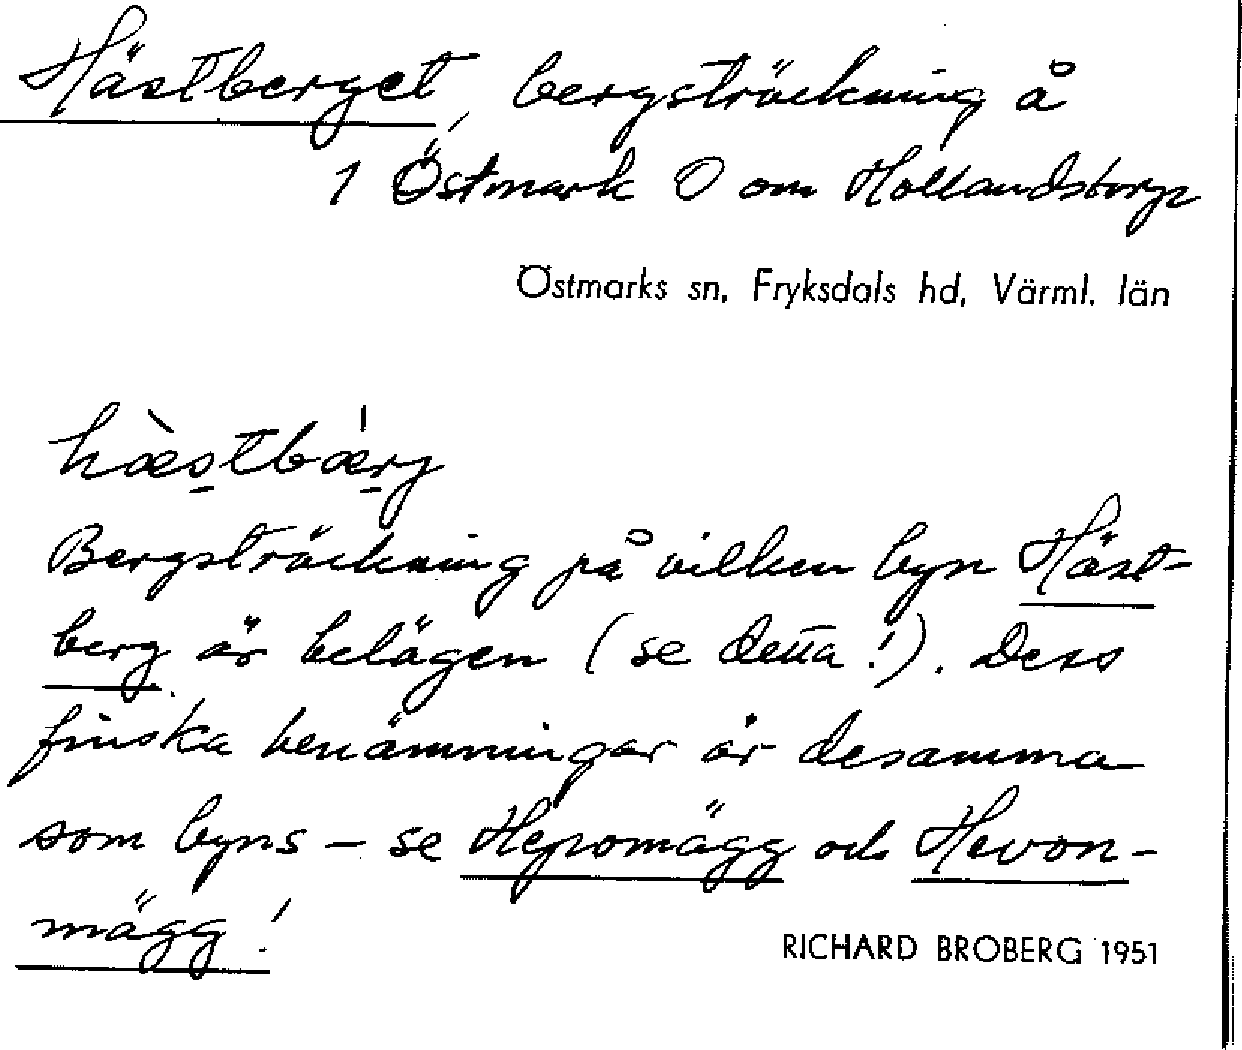 Hästberget, bergsträckning å
1 Östmark O om Hollandstorp
Östmarks sn, Fryksdals hd, Värml. län
hæ̀stbæ̍rj
Bergsträckning på vilken byn Häst-
berg är belägen (se detta!). Dess
finska benämningar är desamma
som byns – se Hepomägg och Hevon-
mägg!
RICHARD BROBERG 1951